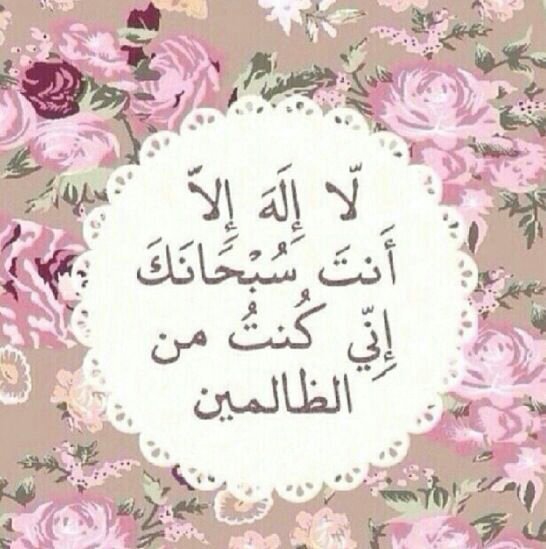 لّا إِلَهَ إِلاّ
أَنتَ سُبْحَانَكَ
إِنِّي كُنتُ من
الظالمين